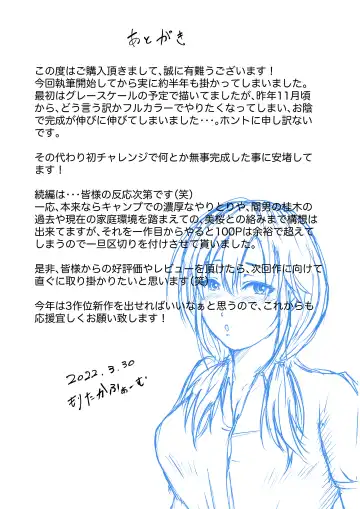 あとがき
この度はご購入頂きまして、誠に有難うございます！
今回執筆開始してから実に約半年も掛かってしまいました。
最初はグレースケールの予定で描いてましたが、昨年11月頃
から、どう言う訳かフルカラーでやりたくなってしまい、お陰
で完成が伸びに伸びてしまいました・・・。ホントに申し訳ない
です。
その代わり初チャレンジで何とか無事完成した事に安堵して
ます！
続編は・・・皆様の反応次第です（笑）
一応、本来ならキャンプでの濃厚なやりとりや、間男の桂木の
過去や現在の家庭環境を踏まえての、美桜との絡みまで構想は
出来てますが、それを一作目からやると100Pは余裕で超えて
しまうので一旦区切りを付けさせて貰いました。
是非、皆様からの好評価やレビューを頂けたら、次回作に向けて
直ぐに取り掛かりたいと思います（笑）
今年は3作位新作を出せればいいなぁと思うので、これからも
応援宜しくお願い致します！
2022.3.30
もりたかふぁーむ